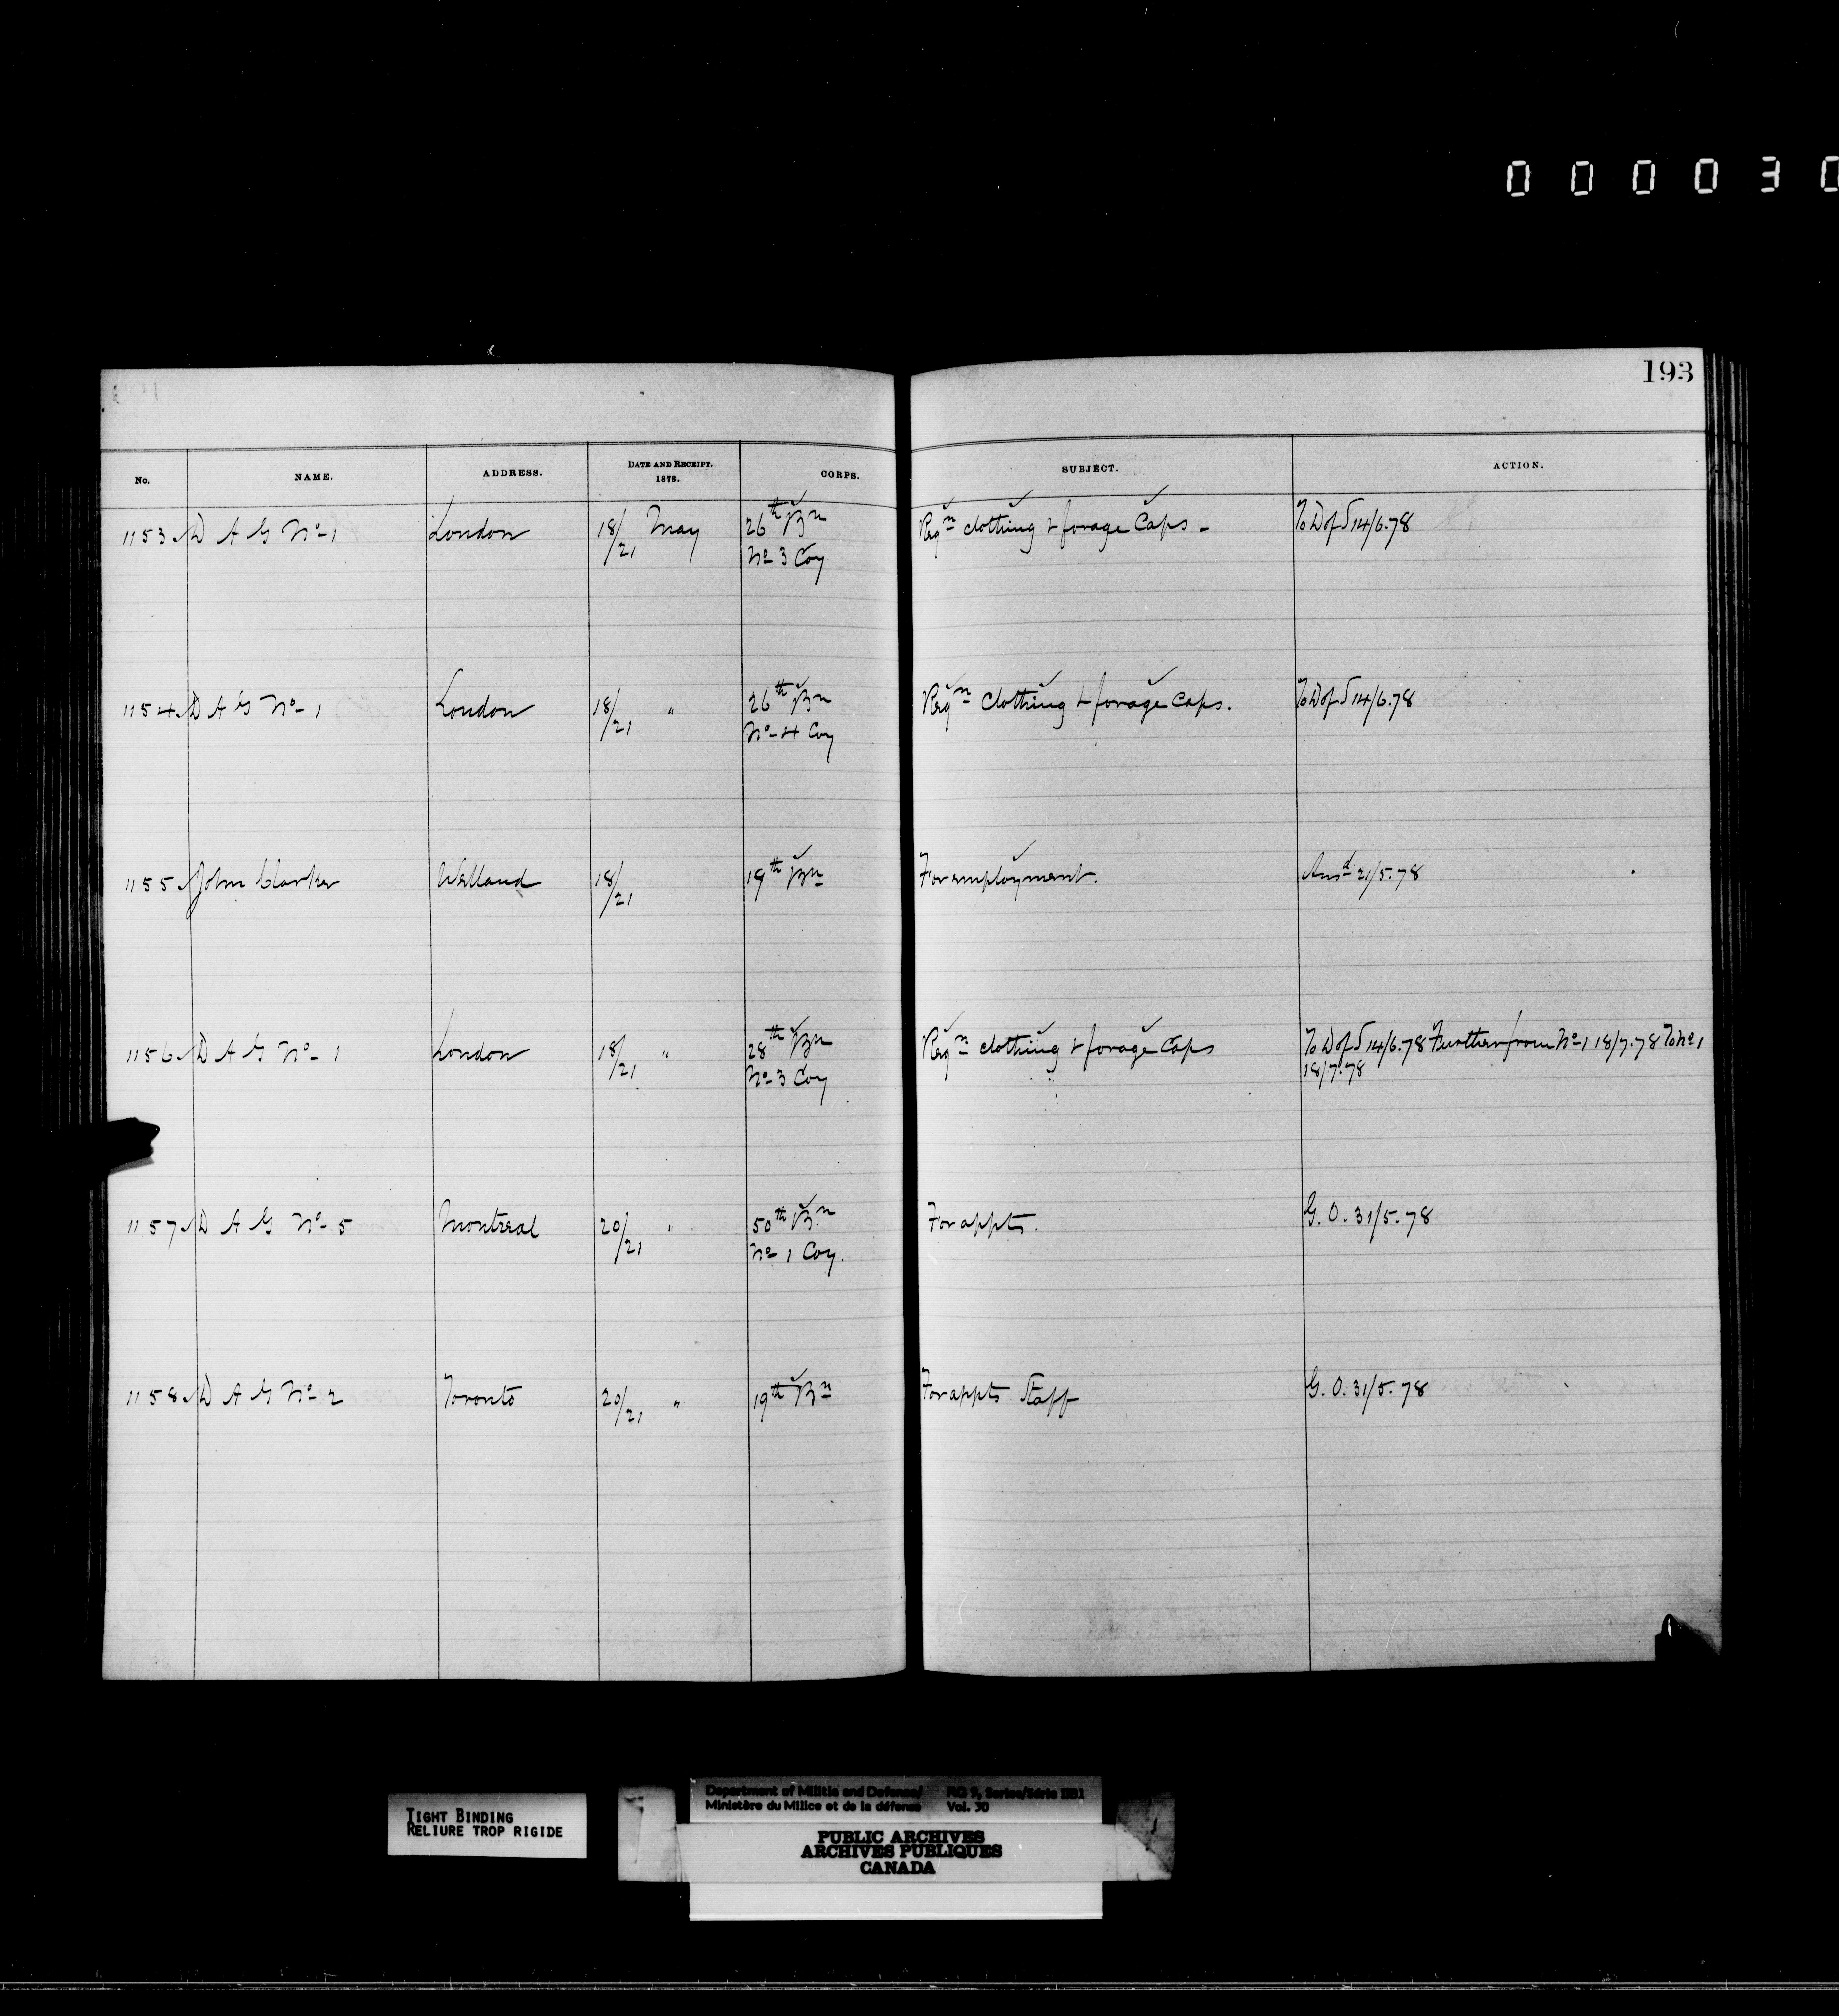 0 0 0 0 3 0
193
No. NAME. ADDRESS. DATE AND RECEIPT. 1878. CORPS. SUBJECT. ACTION.
1153 D A G No- 1 London 18/21 May 26th Bn Reqn clothing & forage Caps - To D of S 14/6.78
No 3 Coy
1154 D A G No- 1 London 18/21 " 26th Bn Reqn Clothing & forage Caps. To D of S 14/6.78
No- 4 Coy
1155 John Clarker Welland 18/21 19th Bn For employment. Ansd 21/5.78
1156 D A G No- 1 London 18/21 " 28th Bn Reqn clothing & forage Caps To D of S 14/6.78 Further from No 1 18/7.78 To No 1
No- 3 Coy 18/7.78
1157 D A G No- 5 Montreal 20/21 " 50th Bn For appts. G. O. 31/5.78
No 1 Coy.
1158 D A G No- 2 Toronto 20/21 " 19th Bn For appts Staff G. O. 31/5.78
TIGHT BINDING
RELIURE TROP RIGIDE
Department of Militia and Defence/ RG 9, Series/Série IIB1
Ministère du Milice et de la défense Vol. 30
PUBLIC ARCHIVES
ARCHIVES PUBLIQUES
CANADA